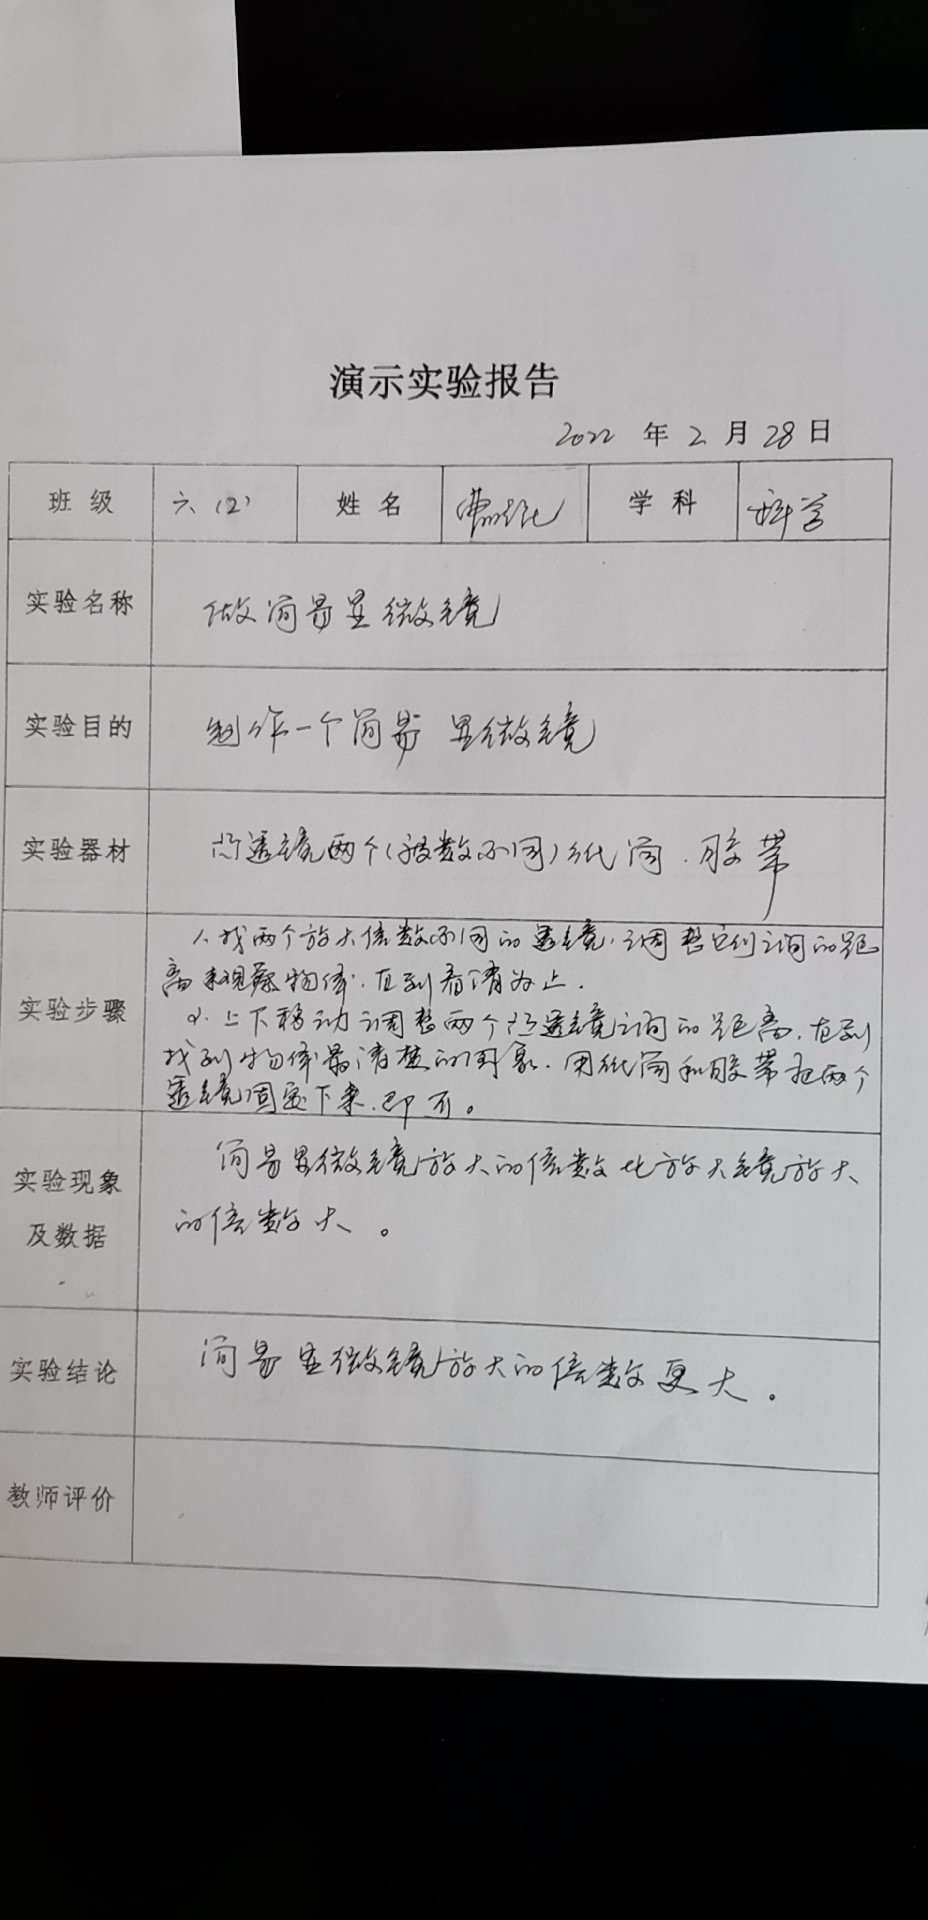 演示实验报告
2022 年 2 月 28 日
班 级 六（2） 姓 名 学 科 科学
实验名称 做简易显微镜
实验目的 制作一个简易显微镜
实验器材 凸透镜两个（倍数不同）纸筒．胶带
实验步骤
1、找两个放大倍数不同的透镜．调整它们之间的距
离来观察物体．直到看清为止．
2．上下移动调整两个凸透镜之间的距离．直到
找到物体最清楚的图象．用纸筒和胶带把两个
透镜固定下来．即可。
实验现象
及数据
简易显微镜放大的倍数比放大镜放大
的倍数大。
实验结论 简易显微镜放大的倍数更大。
教师评价